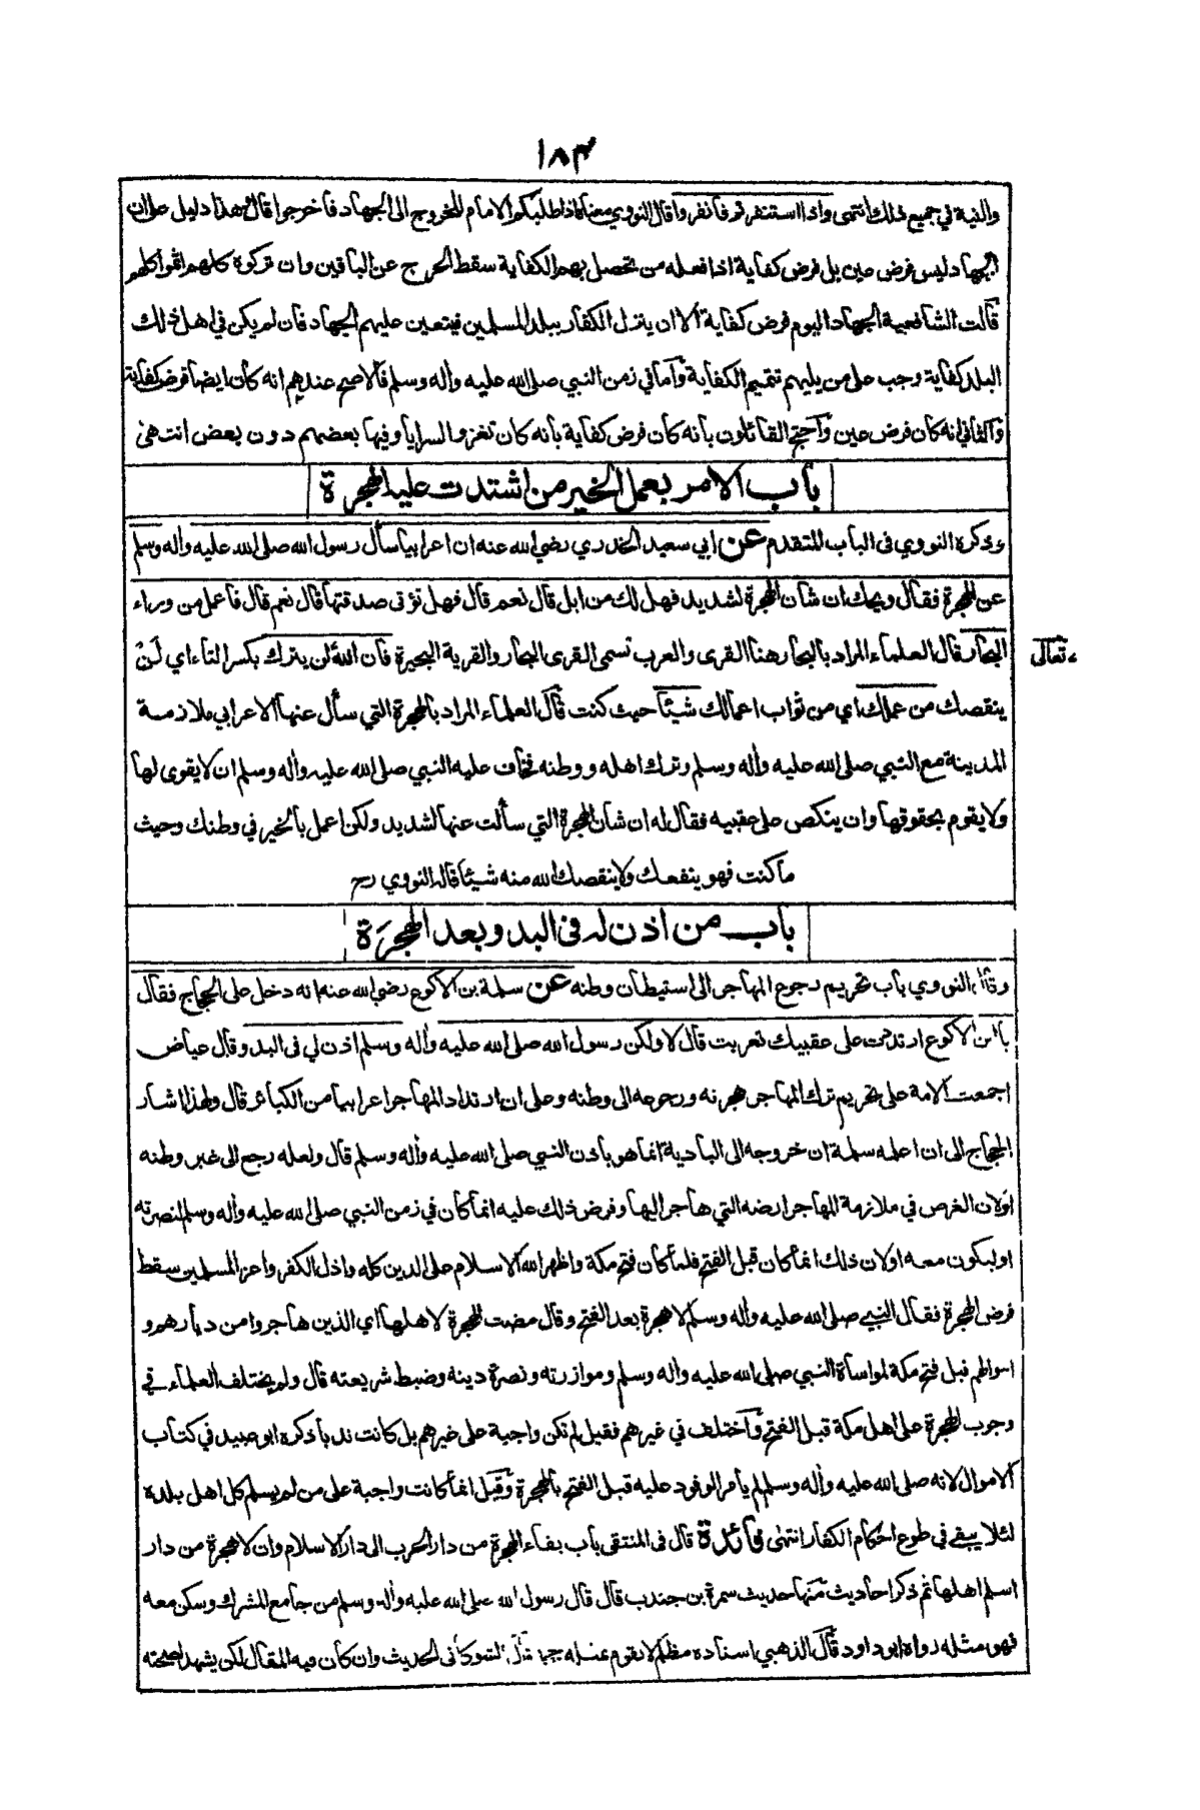 ١٨٣
والنية في جميع ذلك انتهى واذا استنفرتم فانفروا قال النووي معناه اذا طلبكم الامام للخروج الى الجهاد فاخرجوا قال هذا دليل على ان
الجهاد ليس فرض عين بل فرض كفاية اذا فعله من تحصل بهم الكفاية سقط الحرج عن الباقين وان تركوة كلهم اثموا كلهم
قالت الشافعية الجهاد اليوم فرض كفاية الا ان ينزل الكفار ببلد المسلمين فيتعين عليهم الجهاد فان لم يكن في اهل ذلك
البلد كفاية وجب على من يليهم تتميم الكفاية وأما في زمن النبي صلى الله عليه وأله وسلم فالاصح عندهم انه كان ايضا فرض كفاية
والثاني انه كان فرض عين واحتج القائلون بانه كان فرض كفاية بانه كان تغزو السرايا وفيها بعضهم دون بعض انتهى
باب الامر بعمل الخير من اشتدت عليه الهجرة
وذكره النووي فى الباب المتقدم عن ابي سعيد الخدري رضي الله عنه ان اعرابيا سأل رسول الله صلى الله عليه وأله وسلم
عن الهجرة فقال ويحك ان شأن الهجرة لشديد فهل لك من ابل قال نعم قال فهل تؤتى صدقتها قال نعم قال فاعمل من وراء
البحار قال العلماء المراد بالبحار هنا القرى والعرب تسمى القرى البحار والقرية البحيرة فان الله لن يترك بكسر التاء اي لن
تعالى
ينقصك من عملك اي من ثواب اعمالك شيئا حيث كنت قال العلماء المراد بالهجرة التي سأل عنها الاعرابي ملازمة
المدينة مع النبي صلى الله عليه وأله وسلم وترك اهله ووطنه فخاف عليه النبي صلى الله عليه وأله وسلم ان لا يقوى لها
ولا يقوم بحقوقها وان ينكص على عقبيه فقال له ان شأن الهجرة التي سألت عنها لشديد ولكن اعمل بالخير في وطنك وحيث
ما كنت فهو ينفعك ولا ينقصك الله منه شيئا قاله النووي رح
باب من اذن له فى البدو بعد الهجرة
وقال النووي باب تحريم رجوع المهاجر الى استيطان وطنه عن سلمة بن الاكوع رضي الله عنه انه دخل على الحجاج فقال
يا ابن الاكوع ارتددت على عقبيك تعربت قال لا ولكن رسول الله صلى الله عليه وأله وسلم اذن لي فى البدو قال عياض
اجمعت الامة على تحريم ترك المهاجر هجرته ورجوعه الى وطنه وعلى ان ارتداد المهاجر اعرابيا من الكبائر قال ولهذا اشار
الحجاج الى ان اعلمه سلمة ان خروجه الى البادية انما هو باذن النبي صلى الله عليه وأله وسلم قال ولعله رجع الى غير وطنه
اولان الغرض في ملازمة المهاجر ارضه التي هاجر اليها وفرض ذلك عليه انما كان في زمن النبي صلى الله عليه وأله وسلم لنصرته
او ليكون معه اولان ذلك انما كان قبل الفتح فلما كان فتح مكة واظهر الله الاسلام على الدين كله واذل الكفر واعز المسلمين سقط
فرض الهجرة فقال النبي صلى الله عليه وأله وسلم لا هجرة بعد الفتح وقال مضت الهجرة لاهلها اي الذين هاجروا من ديارهم و
اموالهم قبل فتح مكة لمواساة النبي صلى الله عليه وأله وسلم وموازرته ونصرة دينه وضبط شريعته قال ولم يختلف العلماء في
وجوب الهجرة على اهل مكة قبل الفتح واختلف في غيرهم فقيل لم تكن واجبة على غيرهم بل كانت ندبا ذكره ابو عبيد في كتاب
الاموال لانه صلى الله عليه وأله وسلم لم يأمر الوفود عليه قبل الفتح بالهجرة وقيل انما كانت واجبة على من لم يسلم كل اهل بلده
لئلا يبقى في طوع احكام الكفار انتهى فائدة قال فى المنتقى باب بقاء الهجرة من دار الحرب الى دار الاسلام وان لا هجرة من دار
اسلم اهلها ثم ذكر احاديث منها حديث سمرة بن جندب قال قال رسول الله صلى الله عليه وأله وسلم من جامع المشرك وسكن معه
فهو مثله رواه ابو داود قال الذهبي اسناده مظلم لا يقوم بمثله حجة قال الشوكانى الحديث وان كان فيه المقال لكن يشهد لصحته